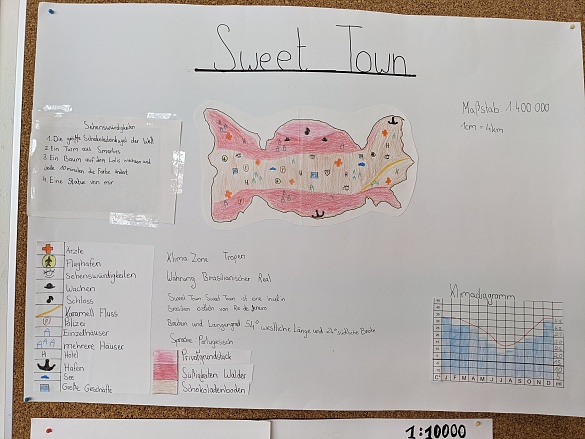 Sweet Town
Maßstab 1:400 000
1cm = 4km
Sehenswürdigkeiten
1. Die größte Schokoladenkugel der Welt
2. Ein Turm aus Smarties
3. Ein Baum auf dem Lolis wachsen und
jede 10 minuten die Farbe ändert
4. Eine Statue von mir
Ärzte
Flughafen
Sehenswürdigkeiten
Wachen
Schloss
Karamell Fluss
Polizei
Einzelhäuser
mehrere Häuser
H Hotel
Hafen
See
Große Geschäfte
Klima Zone Tropen
Währung Brasilianischer Real
Sweet Town Sweet Town ist eine Insel in
Brasilien östlich von Rio de Janeiro
Breiten und Längengrad 54° westliche Länge und 24° südliche Breite
Sprache Portugiesisch
Privatgrundstück
Süßigkeiten Wälder
Schokoladenboden
Klimadiagramm
C° J F M A M J J A S O N D
1:10000